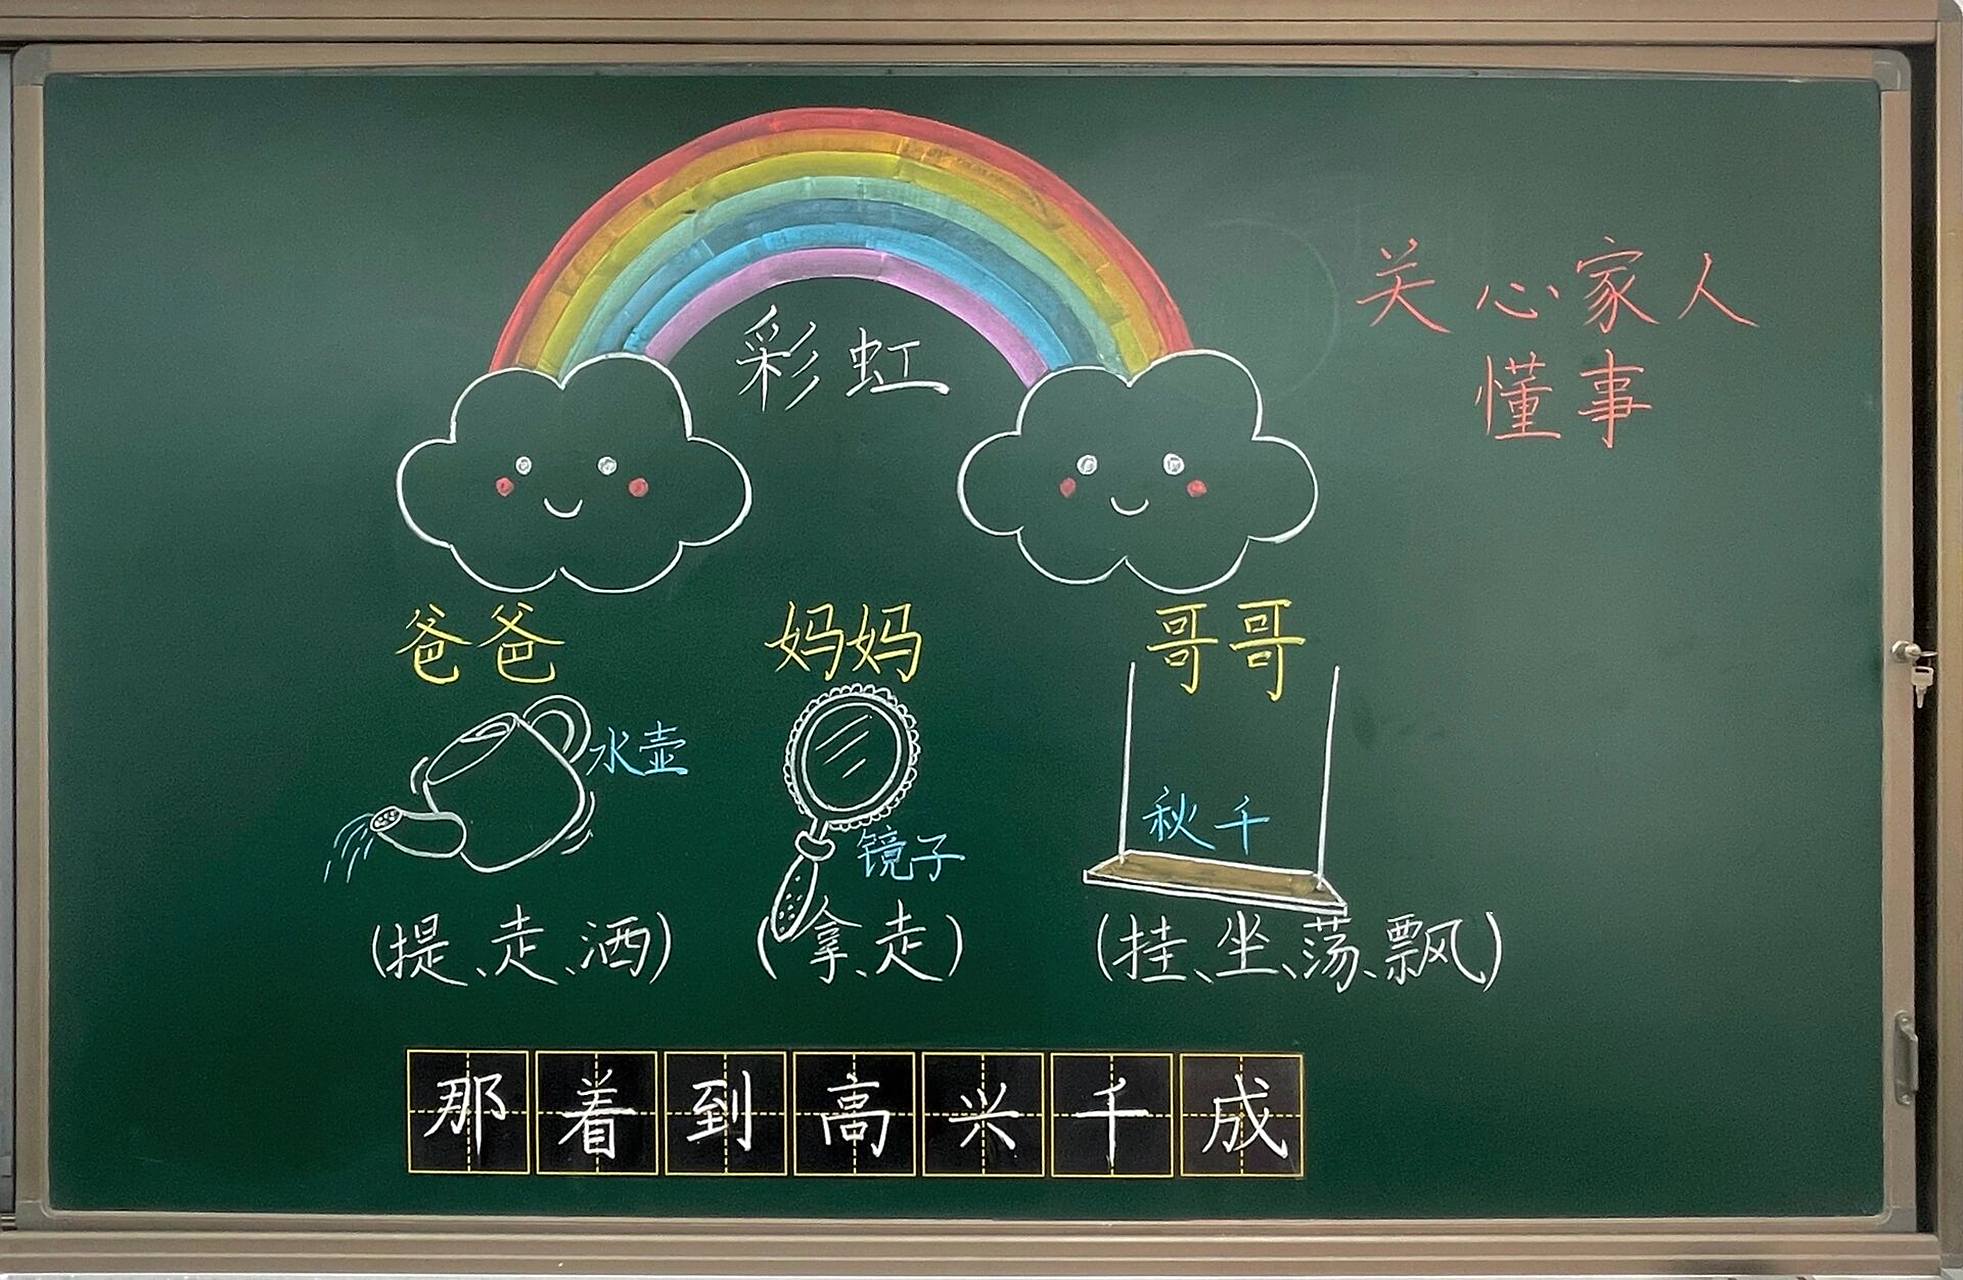 彩虹
关心家人
懂事
爸爸 妈妈 哥哥
水壶
镜子
秋千
(提、走、洒) (拿、走) (挂、坐、荡、飘)
那着到高兴千成